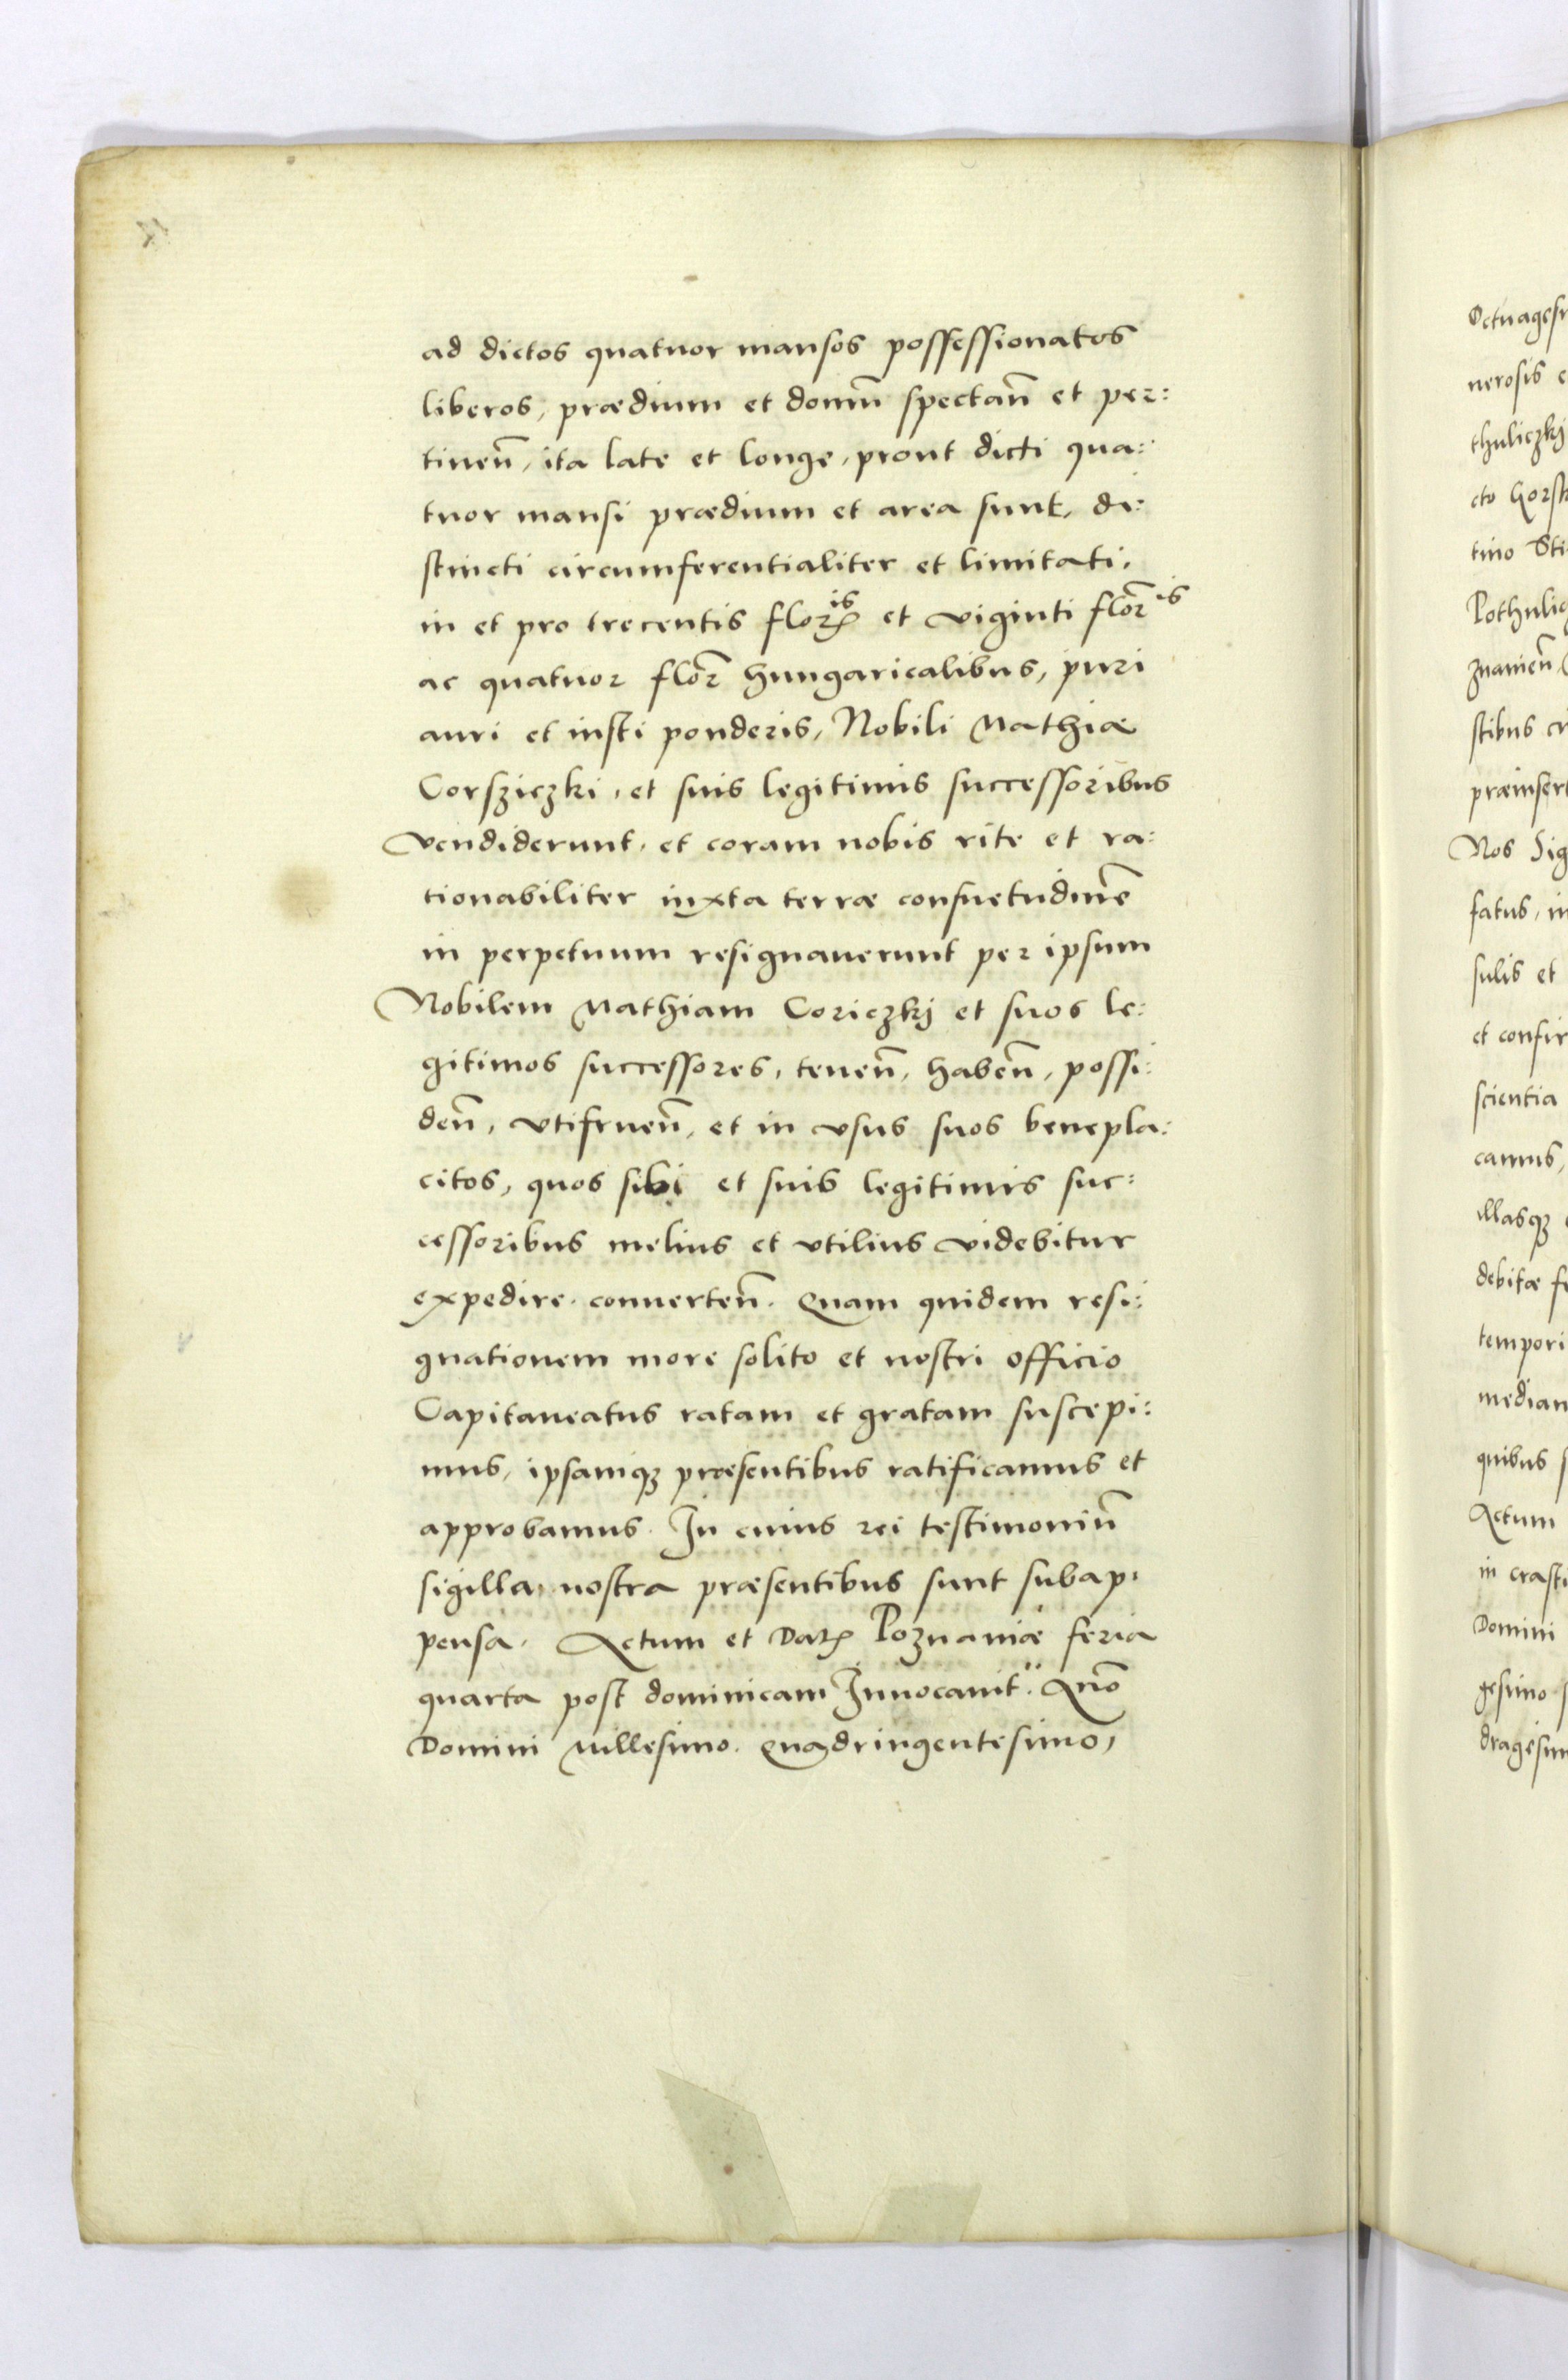 ad dictos quatuor mansos possessionatos
liberos, prædium et domū spectan̄ et per:
tinen̄, ita late et longe, prout dicti qua:
tuor mansi prædium et area sunt, di:
stincti circumferentialiter et limitati,
in et pro trecentis floris et viginti floris
ac quatuor flor̄ hungaricalibus, puri
auri et iusti ponderis, Nobili Mathiæ
Corsziczki, et suis legitimis successoribus
vendiderunt, et coram nobis rite et ra:
tionabiliter iuxta terræ consuetudinē
in perpetuum resignauerunt per ipsum
Nobilem Mathiam Coriczkj et suos le:
gitimos successores, tenen̄, haben̄, possi:
den̄, vtifruen̄, et in vsus suos benepla:
citos, quos sibi et suis legitimis suc:
cessoribus melius et vtilius videbitur
expedire conuerten̄. Quam quidem resi:
gnationem more solito et nostri officio
Capitaneatus ratam et gratam suscepi:
mus, ipsamqȝ præsentibus ratificamus et
approbamus. In cuius rei testimoniū
sigilla nostra præsentibus sunt subap:
pensa. Actum et Datꝝ Poznaniæ feria
quarta post dominicam Inuocauit. Anō
Domini Millesimo. Quadringentesimo,
Octuages
nerosis
thuliczkj
cto Gors
tino St
Pothulic
znanien̄
stibus
præinser
Nos Sig
fatus, in
sulis et
et confir
scientia
camus,
illasqȝ
debitæ
tempori
median
quibus
Actum
in crasti
Domini
gesimo
dragesim